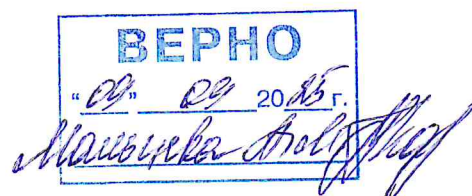 ВЕРНО
"09" 09 2025 г.
Мальцева